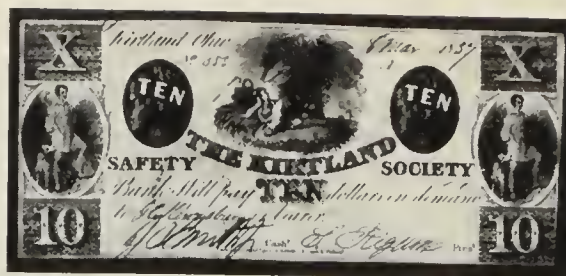 X X
Kirtland Ohio 8 Mar 1837
TEN TEN
THE KIRTLAND
SAFETY SOCIETY
Bank Will pay TEN dollars on demand
to or bearer
J Smith Jr Cash^r S Rigdon Pres^t
10 10